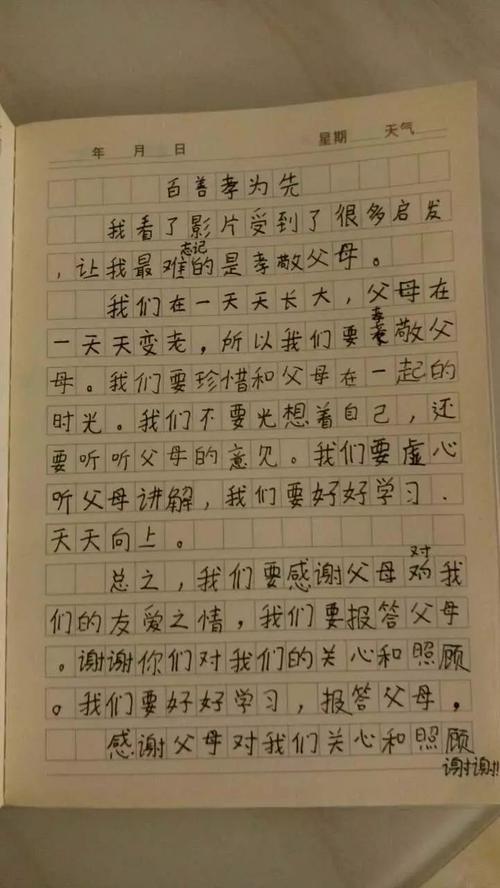 年 月 日 星期 天气
百善孝为先
我看了影片受到了很多启发
,让我最难忘记的是孝敬父母。
我们在一天天长大,父母在
一天天变老,所以我们要孝敬父
母。我们要珍惜和父母在一起的
时光。我们不要光想着自己,还
要听听父母的意见。我们要虚心
听父母讲解,我们要好好学习.
天天向上。
总之,我们要感谢父母对我
们的友爱之情,我们要报答父母
。谢谢你们对我们的关心和照顾
。我们要好好学习,报答父母,
感谢父母对我们关心和照顾
谢谢!!